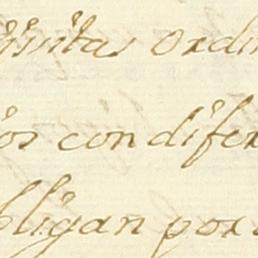 visitas ordin
ios con difer
bligan por